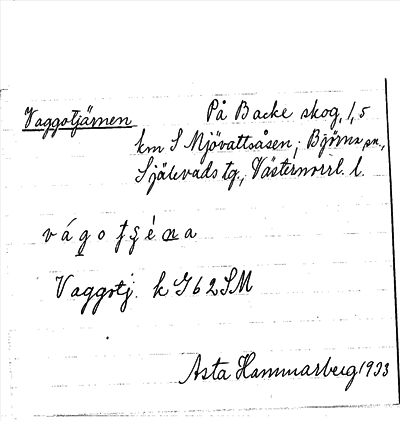 Vaggotjärnen På Backe skog, 1,5
km S Mjövattsåsen, Björna sn.,
Själevads tg., Västernorrl. l.
vágotjéna
Vaggotj. k G62SM
Asta Hammarberg 1933